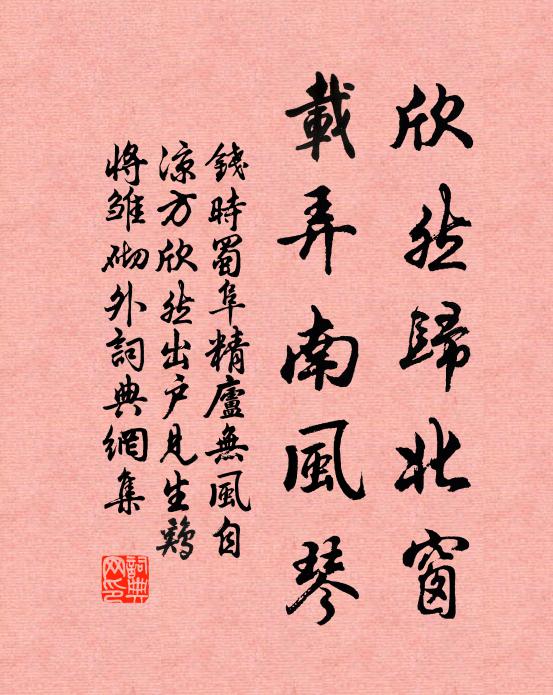 欣然歸北窗
載弄南風琴
錢時蜀阜精廬無風自
凉方欣然出户見生鷄
將雏砌外詞典網集
詞典网印